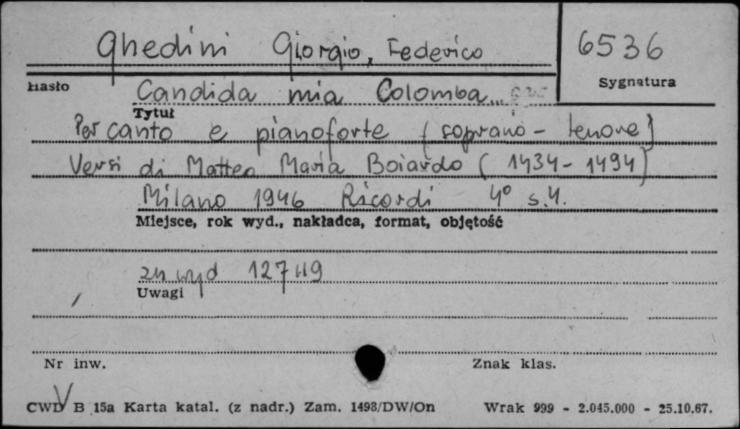 Ghedini Giorgio, Federico
6536
Hasło
Sygnatura
Candida mia Colomba...
Tytuł
Per canto e pianoforte (soprano - tenore)
Versi di Matteo Maria Boiardo (1434-1494)
Milano 1946 Ricordi 4° s.4.
Miejsce, rok wyd., nakładca, format, objętość
zn wyd 127
Uwagi
Nr inw.
Znak klas.
CWD B 15a Karta katal. (z nadr.) Zam. 1498/DW/On
Wrak 999 - 2.045.000 - 25.10.67.